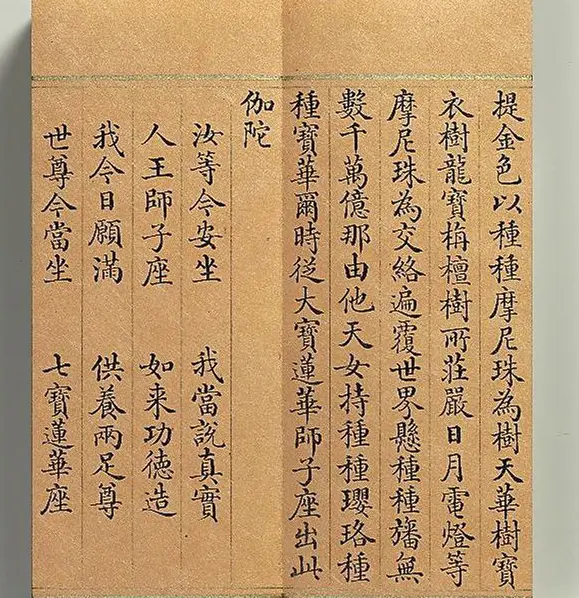 提金色以種種摩尼珠為樹天華樹寶
衣樹龍寶栴檀樹所莊嚴日月電燈等
摩尼珠為交絡遍覆世界懸種種旛無
數千萬億那由他天女持種種瓔珞種
種寶華爾時從大寶蓮華師子座出此
伽陀
汝等今安坐 我當說真實
人王師子座 如來功德造
我今日願滿 供養兩足尊
世尊今當坐 七寶蓮華座